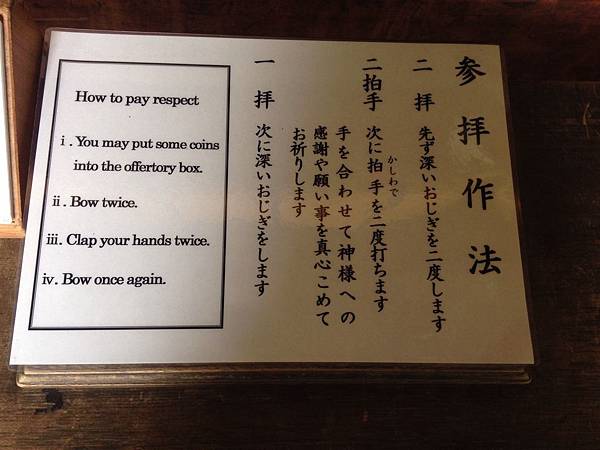 参拝作法
二拝 先ず深いおじぎを二度します
二拍手 次に拍手を二度打ちます
かしわで
手を合わせて神様への
感謝や願い事を真心こめて
お祈りします
一拝 次に深いおじぎをします
How to pay respect
ⅰ. You may put some coins
into the offertory box.
ⅱ. Bow twice.
ⅲ. Clap your hands twice.
ⅳ. Bow once again.